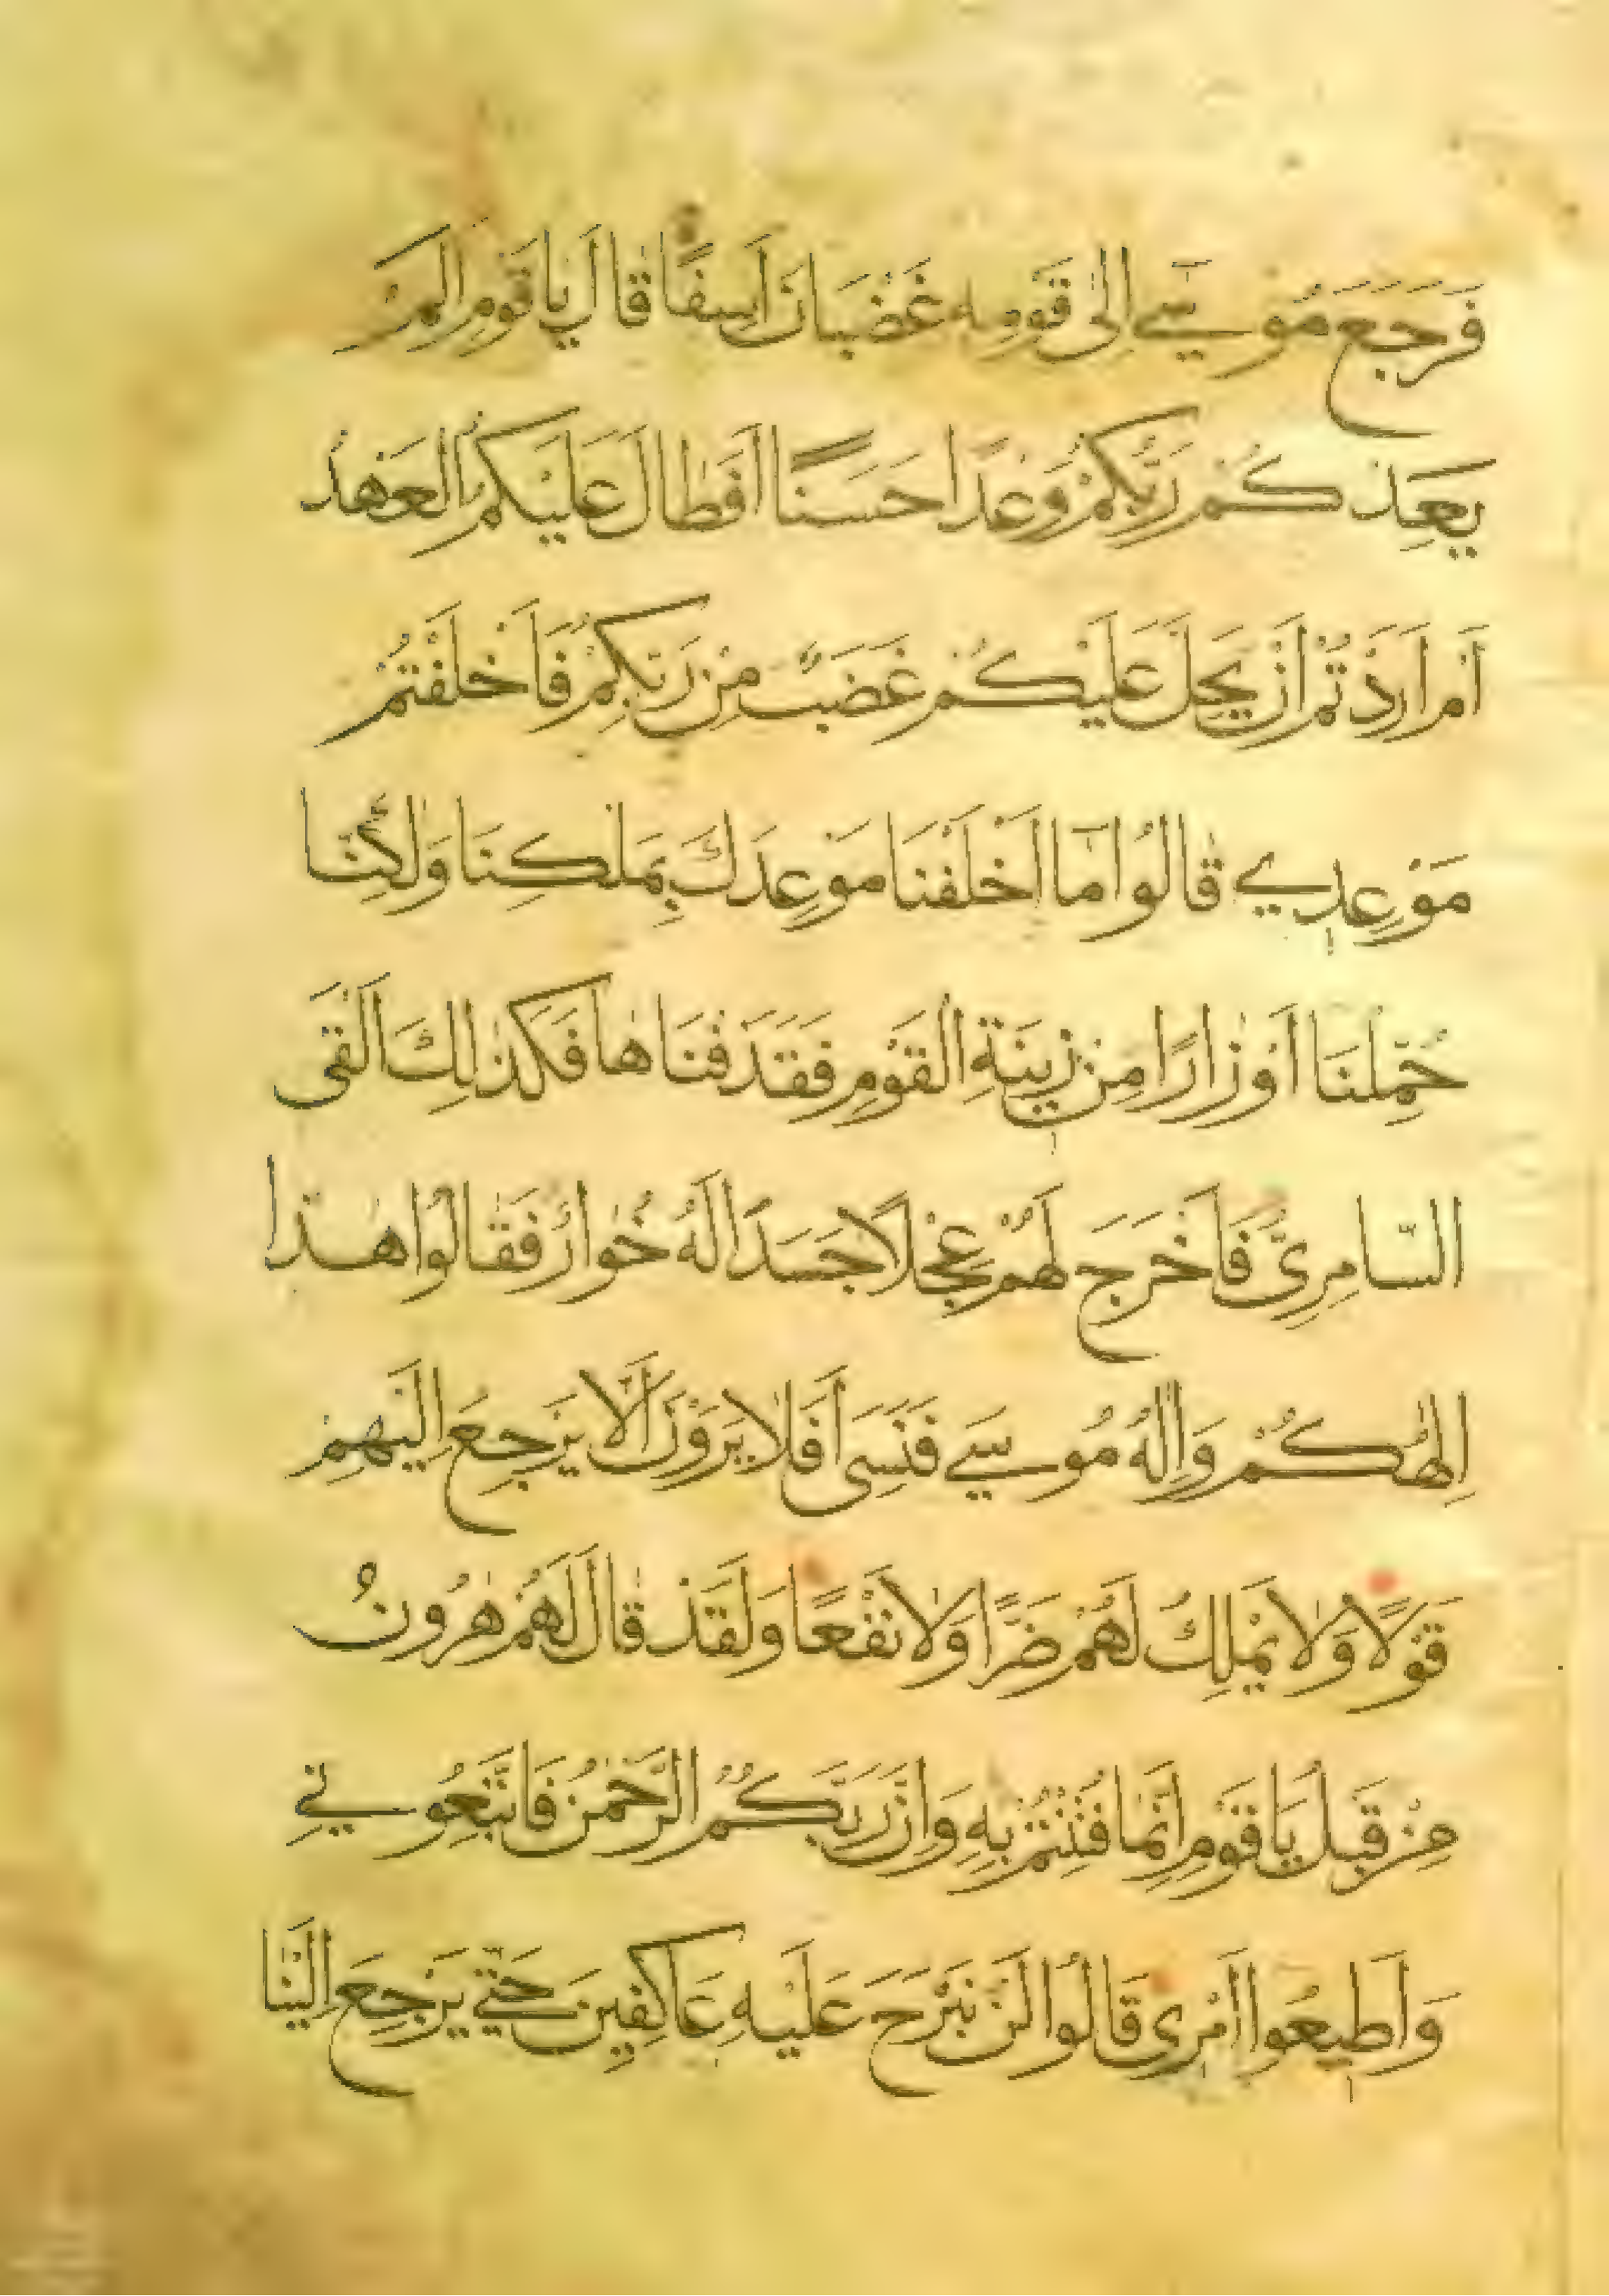 فَرَجَعَ مُوسَىٰ إِلَىٰ قَوْمِهِ غَضْبَانَ أَسِفًا قَالَ يَا قَوْمِ أَلَمْ
يَعِدْكُمْ رَبُّكُمْ وَعْدًا حَسَنًا أَفَطَالَ عَلَيْكُمُ الْعَهْدُ
أَمْ أَرَدْتُمْ أَنْ يَحِلَّ عَلَيْكُمْ غَضَبٌ مِنْ رَبِّكُمْ فَأَخْلَفْتُمْ
مَوْعِدِي قَالُوا مَا أَخْلَفْنَا مَوْعِدَكَ بِمَلْكِنَا وَلَٰكِنَّا
حُمِّلْنَا أَوْزَارًا مِنْ زِينَةِ الْقَوْمِ فَقَذَفْنَاهَا فَكَذَٰلِكَ أَلْقَى
السَّامِرِيُّ فَأَخْرَجَ لَهُمْ عِجْلًا جَسَدًا لَهُ خُوَارٌ فَقَالُوا هَٰذَا
إِلَٰهُكُمْ وَإِلَٰهُ مُوسَىٰ فَنَسِيَ أَفَلَا يَرَوْنَ أَلَّا يَرْجِعَ إِلَيْهِمْ
قَوْلًا وَلَا يَمْلِكُ لَهُمْ ضَرًّا وَلَا نَفْعًا وَلَقَدْ قَالَ لَهُمْ هَٰرُونُ
مِنْ قَبْلُ يَا قَوْمِ إِنَّمَا فُتِنْتُمْ بِهِ وَإِنَّ رَبَّكُمُ الرَّحْمَٰنُ فَاتَّبِعُونِي
وَأَطِيعُوا أَمْرِي قَالُوا لَنْ نَبْرَحَ عَلَيْهِ عَاكِفِينَ حَتَّىٰ يَرْجِعَ إِلَيْنَا